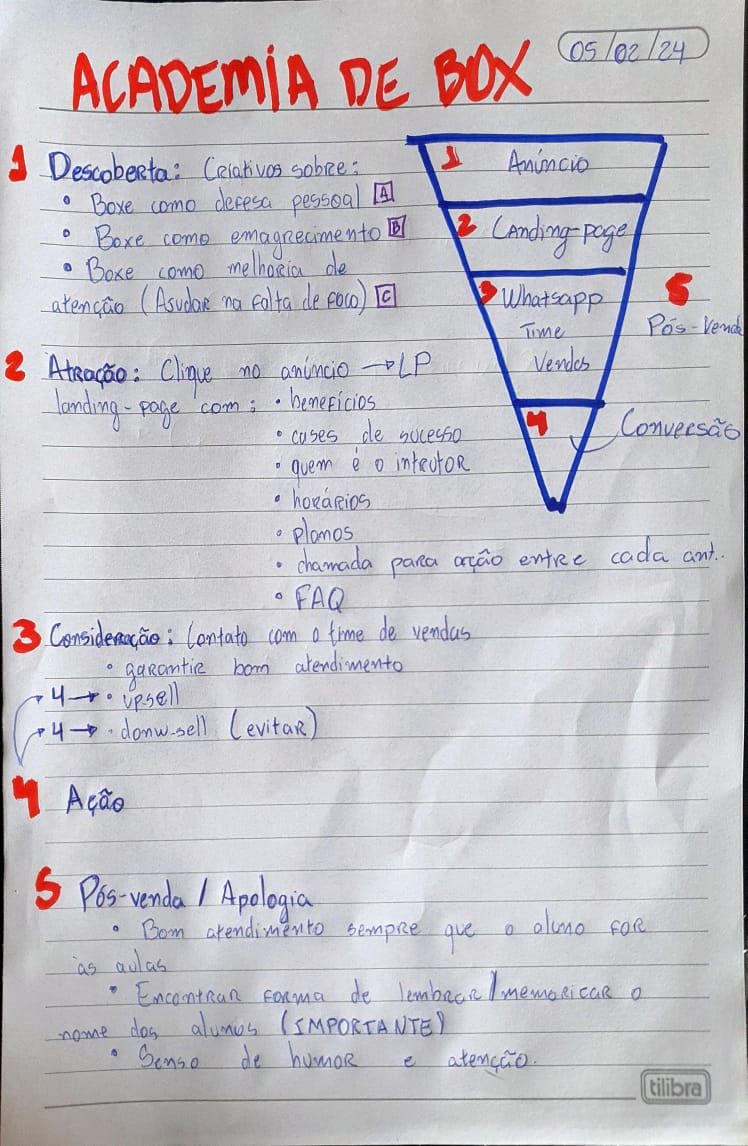 ACADEMIA DE BOX
05/02/24
1 Descoberta: Criativos sobre:
• Boxe como defesa pessoal A
• Boxe como emagrecimento B
• Boxe como melhoria de
atenção (Asudar na falta de foco) C
1 Anúncio
2 Landing-page
3 Whatsapp
Time
Vendas
4 Conversão
5
Pós-Venda
2 Atração: Clique no anúncio → LP
landing-page com: • benefícios
• cases de sucesso
• quem é o intrutor
• horários
• planos
• chamada para acção entre cada ant..
• FAQ
3 Consideração: Contato com o time de vendas
• garantir bom atendimento
4 → • up-sell
4 → • donw-sell (evitar)
4 Ação
5 Pós-venda / Apologia
• Bom atendimento sempre que o aluno for
às aulas
• Encontrar forma de lembrar/memoricar o
nome dos alunos (IMPORTANTE)
• Senso de humor e atenção.
tilibra